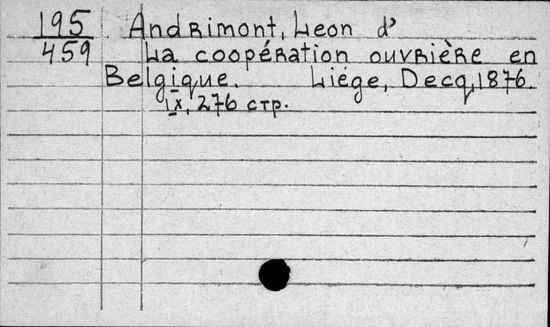 195 Andrimont, Leon d'
459 La coopération ouvrière en
Belgique. Liége, Decq, 1876.
IX, 276 стр.